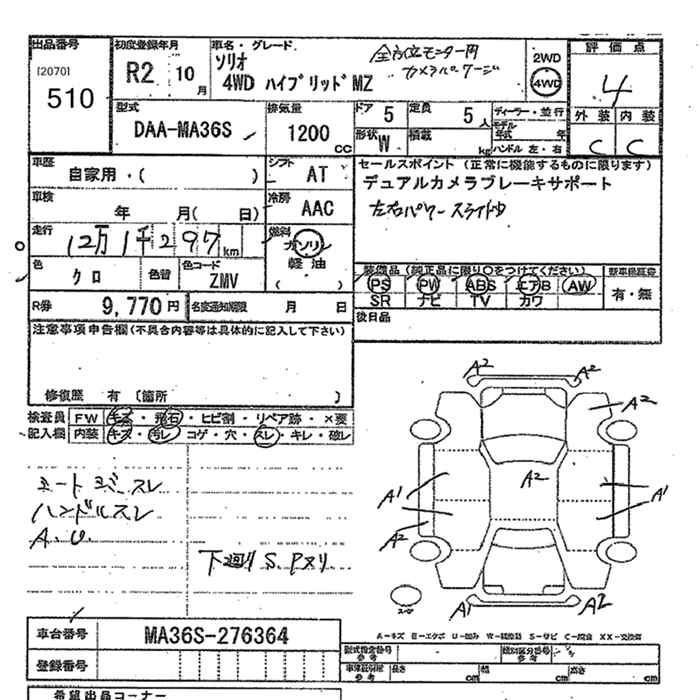 出品番号 初度登録年月 車名・グレード 評価点
[2070] 510
R2 10月
ソリオ
4WD ハイブリッドMZ
全方位モニター用
カメラパッケージ
2WD 4WD
4
外装 内装
C C
型式 排気量 ドア 5 定員 5人 ディーラー・並行
DAA-MA36S 1200cc
形状 W 積載 kg モデル年式 年
ハンドル 左・右
車歴 自家用・( ) シフト AT
セールスポイント (正常に機能するものに限ります)
デュアルカメラブレーキサポート
左右パワースライドD
車検 年 月(日) 冷房 AAC
走行 12万1千297km 燃料 ガソリン 軽油 ( )
色 クロ 色替 色コード ZMV
装備品 (純正品に限り○をつけてください) 新車保証書
PS PW ABS エアB AW 有・無
SR ナビ TV カワ
R券 9,770円 名変通知期限 月 日
後日品
注意事項申告欄(不具合内容等は具体的に記入して下さい)
修復歴 有 〔箇所 〕
検査員 FW キズ・飛石・ヒビ割・リペア跡・×要
記入欄 内装 キズ・汚レ・コゲ・穴・スレ・キレ・破レ
A2 A2
A2
A2
A1 A1
A2
A1 A2
シート スレ
ハンドルスレ
A.U.
下廻りS.Pヌリ
A-キズ E-エクボ U-凹み S-サビ C-腐食 XX-交換済
車台番号 MA36S-276364
型式指定番号 類別区分番号
参考 参考
登録番号
長さ cm 幅 cm 高さ cm
希望出品コーナー